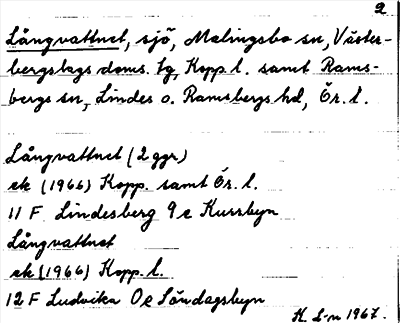 2
Långvattnet, sjö, Malingsbo sn, Väster-
bergslags doms. tg, Kopp. l. samt Rams-
bergs sn, Lindes o. Ramsbergs hd, Ör. l.
Långvattnet (2 ggr)
ek (1966) Kopp. samt Ör. l.
11 F Lindesberg 9 e Kurrbyn
Långvattnet
ek (1966) Kopp. l.
12 F Ludvika 0 e Söndagsbyn
K. L-n 1967.